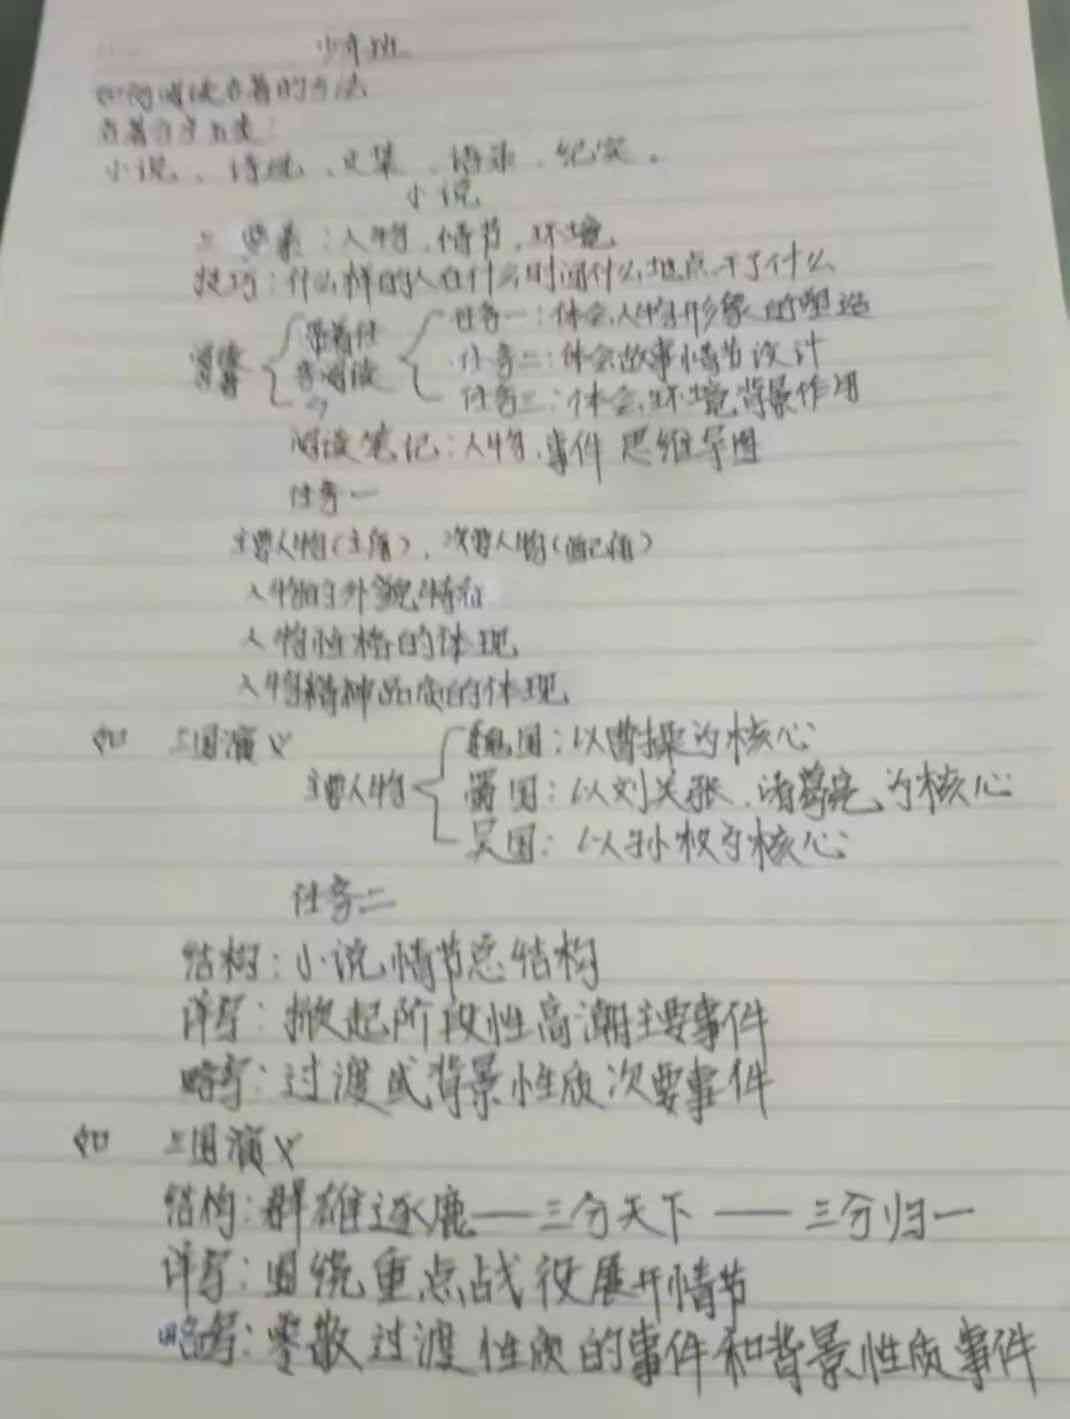 少年班
如何阅读名著的方法
名著分为五类:
小说、诗歌、文集、语录、纪实。
小说
三要素:人物、情节、环境
技巧:什么样的人在什么时间什么地点干了什么
阅读名著
带着任务阅读
任务一:体会人物形象的塑造
任务二:体会故事情节设计
任务三:体会环境背景作用
阅读笔记:人物、事件 思维导图
任务一
主要人物(主角)、次要人物(配角)
人物的外貌特征
人物性格的体现
人物精神品质的体现
如 三国演义
主要人物
魏国:以曹操为核心
蜀国:以刘关张、诸葛亮为核心
吴国:以孙权为核心
任务二
结构:小说情节总结构
详写:掀起阶段性高潮主要事件
略写:过渡或背景性质次要事件
如 三国演义
结构:群雄逐鹿——三分天下——三分归一
详写:围绕重点战役展开情节
略写:零散过渡性质的事件和背景性质事件